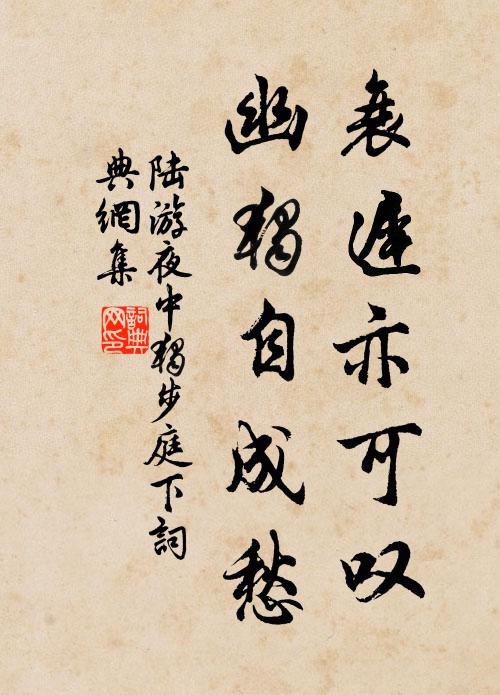 衰遲亦可叹
幽獨自成愁
陆游夜中獨步庭下詞
典網集
詞典网印